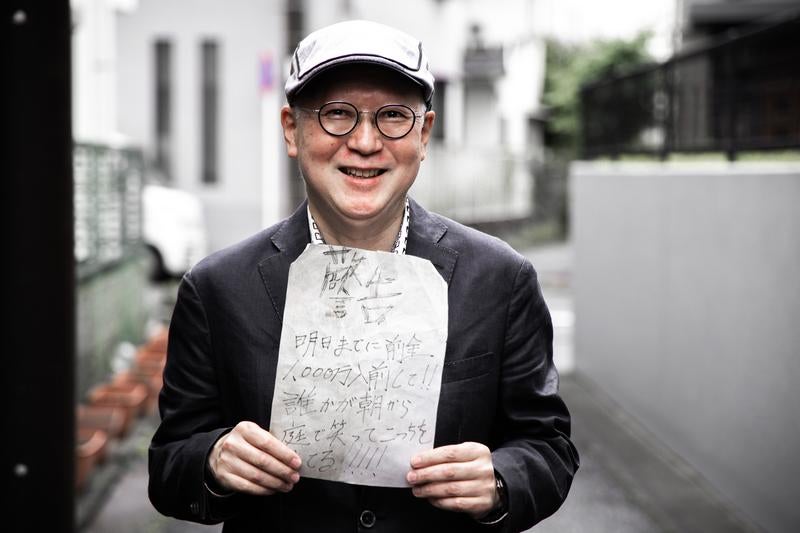 警告
明日までに前金
1,000万入前して!!
誰かが朝から
庭で笑ってこっちを
てる!!!!